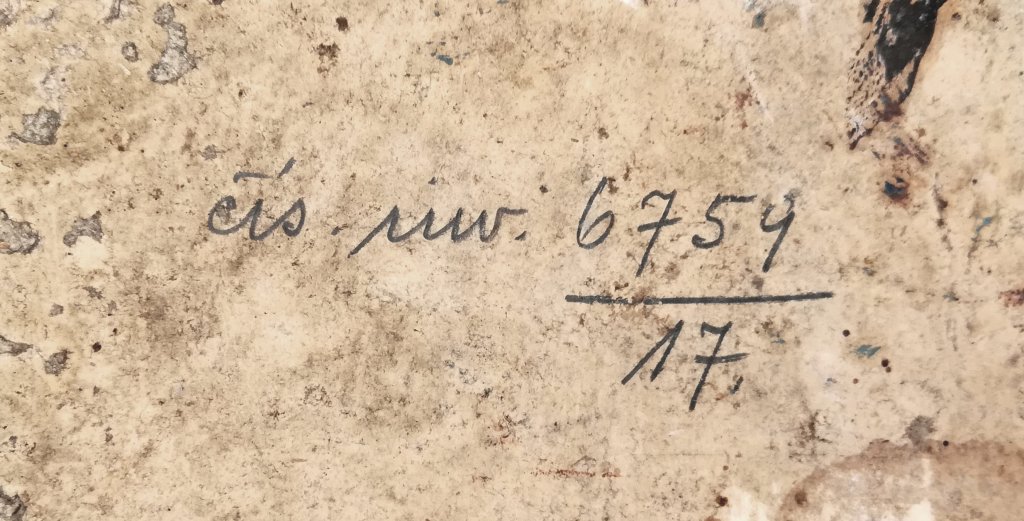 čís. inv. 6759
17.